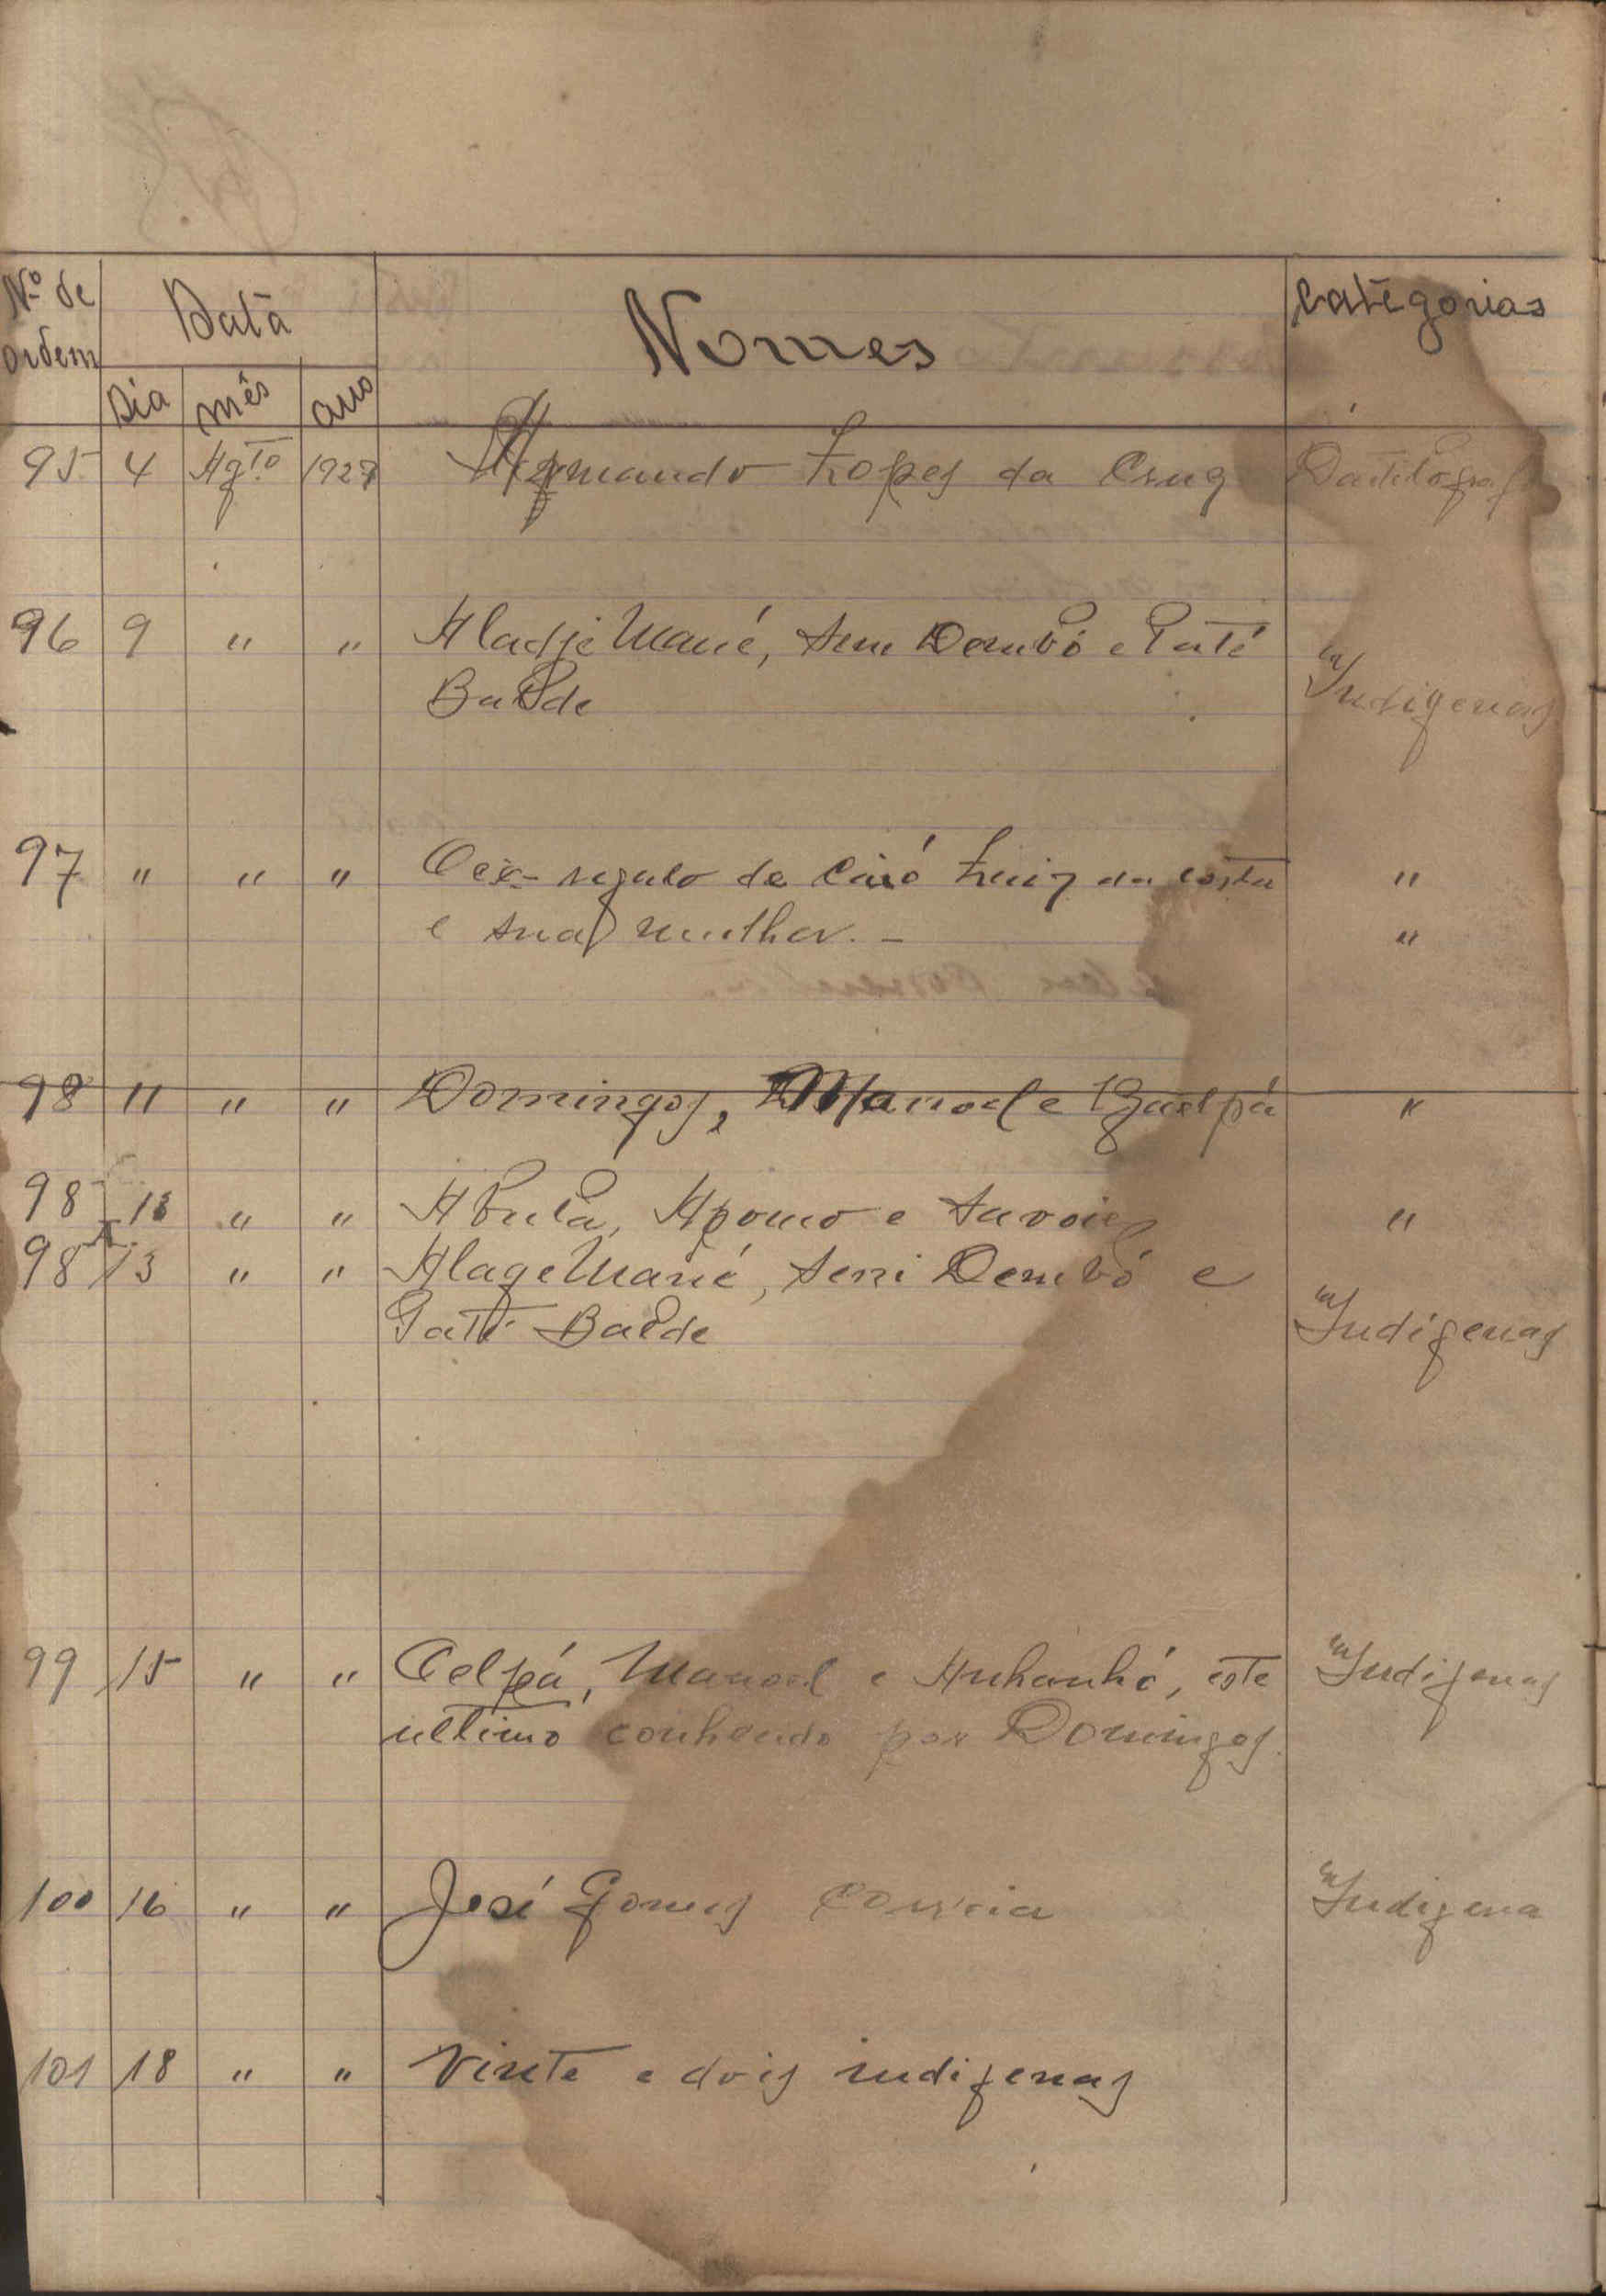 Nº de ordem Data Nomes Categorias
Dia mês ano
95 4 Agto 1927 Armando Lopes da Cruz Datilografo
96 9 " " Aladje Mané, Sene Dembó e Paté
Balde Indigenas
97 " " " O ex-regulo de Caió Luiz da Costa "
e sua mulher. - "
98 11 " " Domingos, Manoel e "
98 13 " " Apomo e "
98 13 " " Alage Mané, Seni Dembó e
Paté Balde Indigenas
99 15 " " Oelpá, Manoel e Anhanhó, este Indigenas
ultimo conhecido por Domingos.
100 16 " " José Gomes Correia Indigena
101 18 " " Vinte e dois indigenas